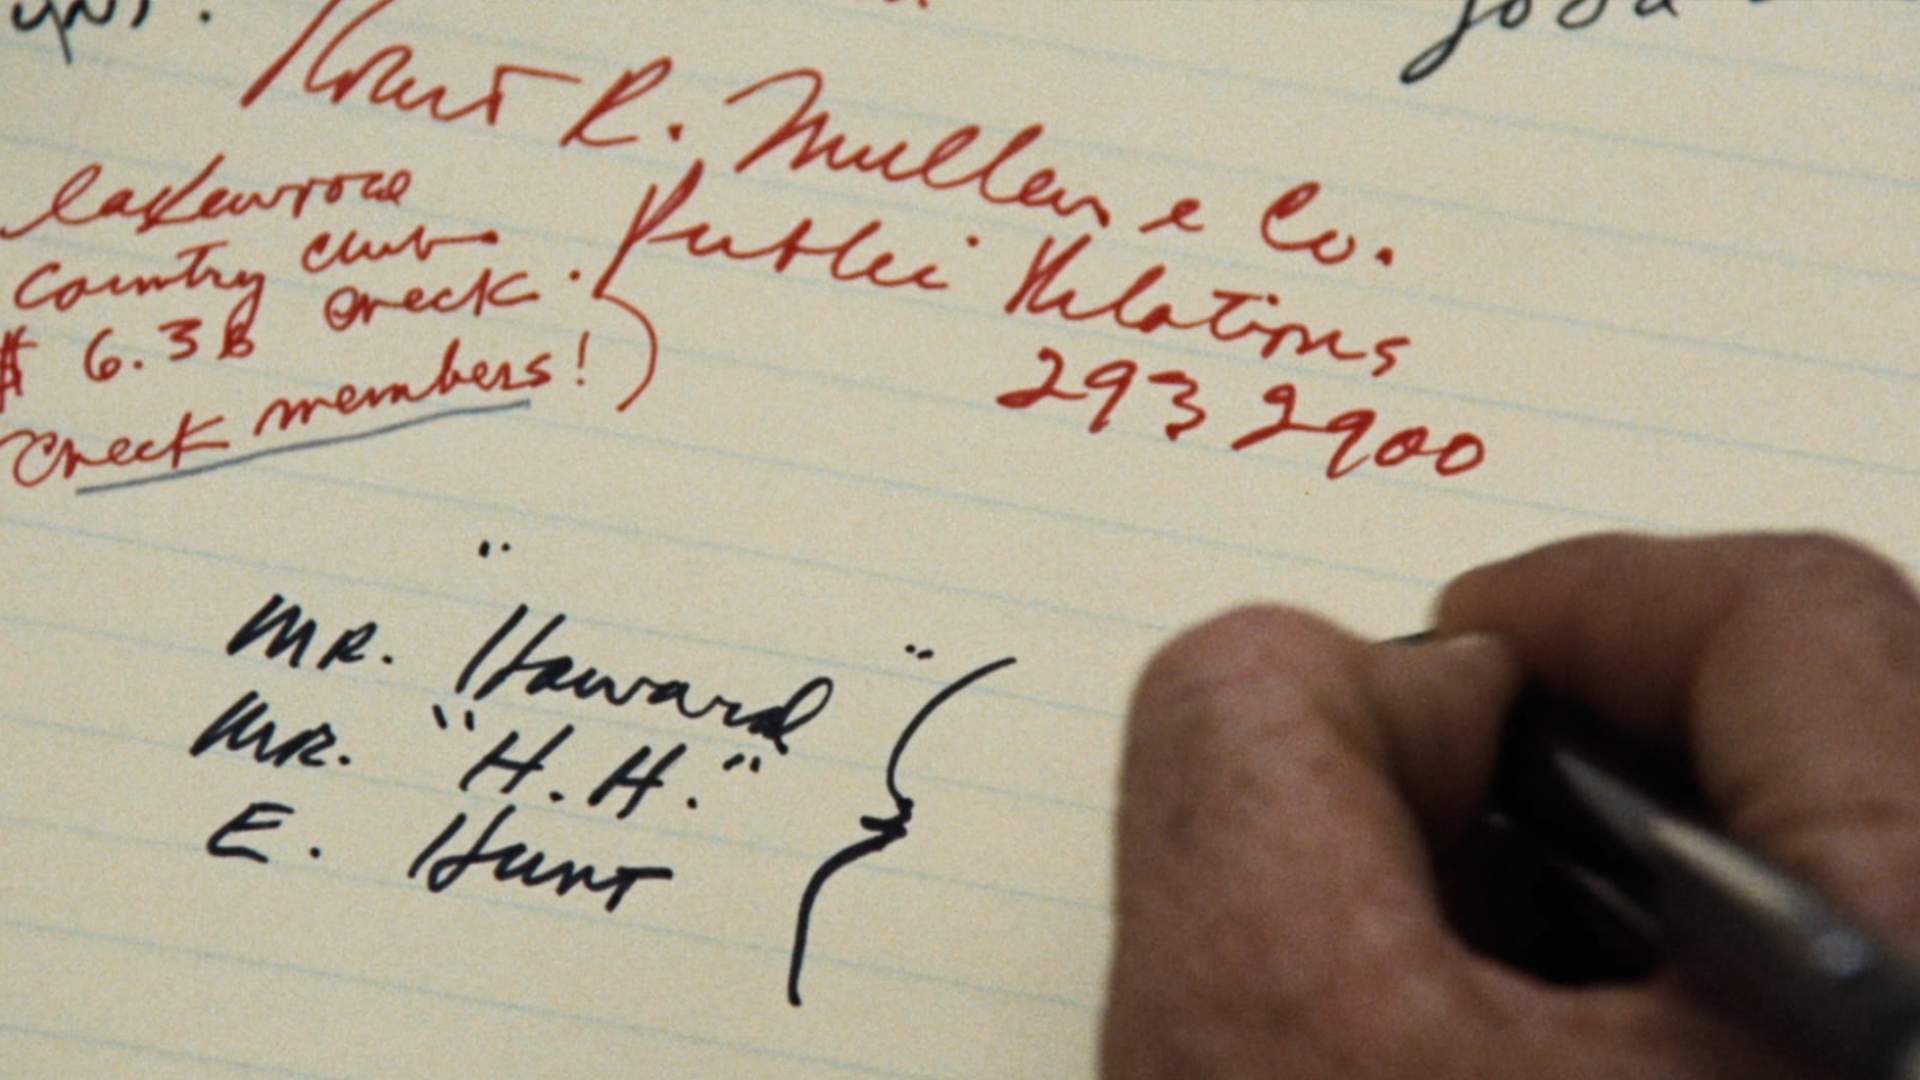 Robert R. Mullen & Co.
Public Relations
293 2900
Lakewood
Country Club
check.
$ 6.3 B
Check members!
MR. "Howard"
MR. "H.H."
E. Hunt